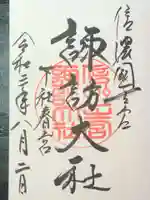 信濃國一之宮
諏訪大社
下社春宮
令和二年一月二日